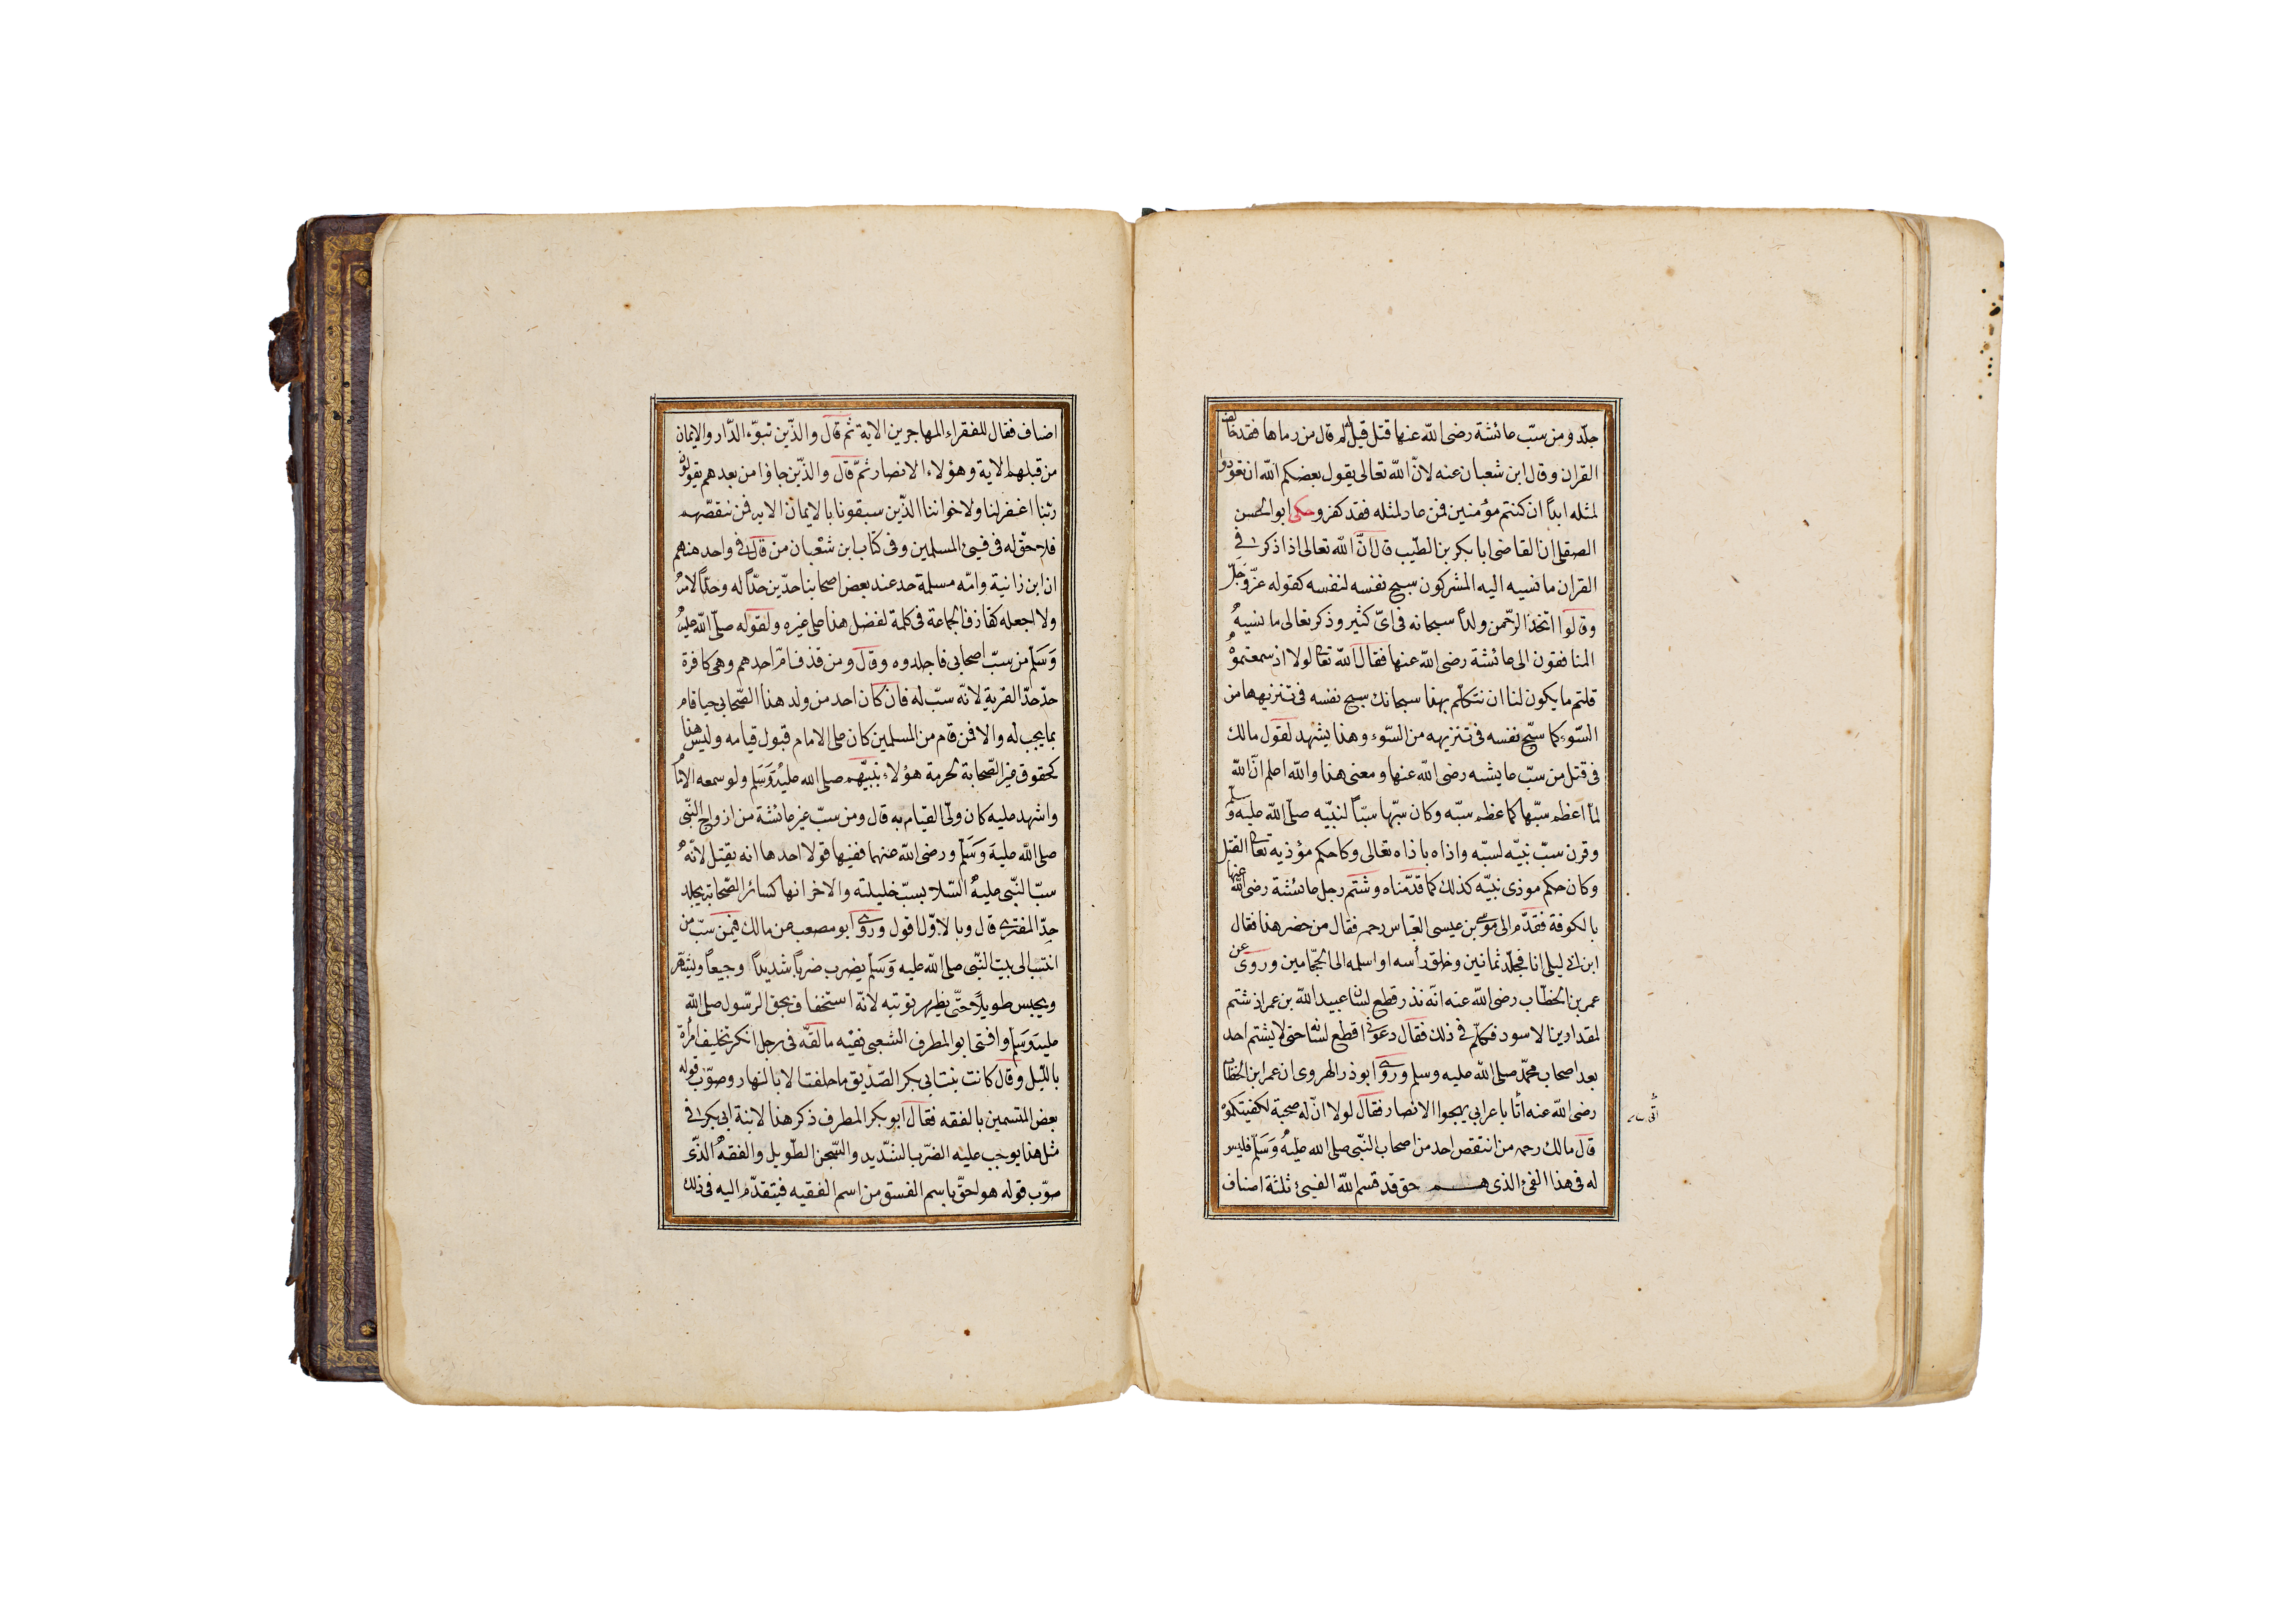 جلد ومن سبّ عائشة رضى الله عنها قتل قيل له لم قال من رماها فقد خالف
القران وقال ابن شعبان عنه لانّ الله تعالى يقول يعضكم الله ان تعودوا
لمثله ابداً ان كنتم مؤمنين فمن عاد لمثله فقد كفر وحكى ابوالحسن
الصقلى ان القاضى ابا بكر بن الطيّب قال انّ الله تعالى اذا ذكر فى
القران ما نسبه اليه المشركون سبح نفسه لنفسه كقوله عزّ وَجَلّ
وقالوا اتخذ الرّحمن ولداً سبحانه فى اىّ كثير وذكر تعالى ما نسبه
المنافقون الى عائشة رضى الله عنها فقال الله تعالى لولا اذ سمعتموه
قلتم ما يكون لنا ان نتكلّم بهذا سبحانك سبح نفسه فى تنزيهها من
السّوء كما سبّح نفسه فى تنزيهه من السّوء وهذا يشهد لقول مالك
فى قتل من سبّ عايشه رضى الله عنها ومعنى هذا والله اعلم انّ الله
لمّا اعظم سبّها كما عظم سبّه وكان سبّها سبّاً لنبيّه صلّى الله عليه وسلّم
وقرن سبّ نبيّه لسبّه واذاه باذاه تعالى وكا حكم مؤذيه تعالى القتل
وكان حكم موذى نبيّه كذلك كما قدّمناه وشتم رجل عائشة رضى الله عنها
بالكوفة فقدّم الى موسى بن عيسى العبّاس رحمه فقال من حضر هذا فقال
ابن ابى ليلى انا فجلد ثمانين وحلق رأسه واسلمه الى الحجّامين وروى عن
عمر بن الخطّاب رضى الله عنه انّه نذر قطع لسان عبيد الله بن عمر اذ شتم
لمقداد بن الاسود فكلّم فى ذلك فقال دعونى اقطع لسانه حتى لا يشتم احد
بعد اصحاب محمّد صلى الله عليه وسلم وروى ابوذر الهروى ان عمر ابن الخطاب
رضى الله عنه أتا باعرابى يهجوا الانصار فقال لولا انّ له صحبة لكفيتكموه
قال مالك رحمه من انتقص احد من اصحاب النّبى صلى الله عليه وَسَلّم فليس
له فى هذا الفئ الذى هــم حق قد قسم الله الفيئ ثلثة اصناف
اصناف فقال للفقراء المهاجرين الاية ثم قال والذّين تبوّء الدّار والايمان
من قبلهم الاية وهؤلاء الانصار ثمّ قال والذّين جاؤا من بعدهم يقولون
ربّنا اغفر لنا ولاخواننا الذّين سبقونا بالايمان الايه فمن تنقصّهم
فلا حقّ له فى فيئ المسلمين وفى كتاب ابن شعْبان من قال فى واحد منهم
ان ابن زانية وامّه مسلمة حد عند بعض اصحابنا حدّين حدّاً له وحدّاً لامّه
ولا اجعله كقاذف الجماعة فى كلمة لفضل هذا على غيره ولقوله صلّى الله عليه
وَسَلّم من سبّ اصحابى فاجلدوه وقال ومن قذف امّ احدهم وهى كافرة
حدّ حدّ الفرية لانّه سبّ له فان كان احد من ولد هذا الصّحابى حيا قام
بما يجب له والا فمن قام من المسلمين كان على الامام قبول قيامه وليس هذا
كحقوق غير الصّحابة لحرمة هؤلاء بنبيّهم صلى الله عليه وَسَلم ولو سمعه الامام
واشهد عليه كان ولىّ القيام به قال ومن سبّ غير عائشة من ازواج النّبى
صلى الله عليه وَسَلّم ورضى الله عنهما ففيها قولا احدها انه يقتل لانّه
سبّ النّبى عليه السّلا بسبّ خليلته والاخر انها كسائر الصّحابة يجلد
حدّ المفترى قال وبالاوّل اقول وروى ابو مصعب عن مالك فيمن سبّ من
انتسب الى بيت النّبى صلى الله عليه وَسَلّم يضرب ضرباً شديداً وجيعاً ويشهّر
ويحبس طويلاً حتّى يظهر توبته لانّه استخفاف بحق الرسّول صلى الله
عليه وَسَلم وافتى ابو المطرف الشعبى فقيه مالقّه فى رجل انكر تخليف امرأة
باللّيل وقال كانت بنت ابى بكر الصّديق ما حلفت الا بالنهار وصوّب قوله
بعض المتسمين بالفقه فقال ابو بكر المطرف ذكر هذا لابنة ابى بكر فى
مثل هذا يوجب عليه الضرّب الشّديد والسّجن الطّويل والفقه الذّى
صوّب قوله هو لحقّ باسم الفسق من اسم الفقيه فيتقدّم اليه فى ذلك